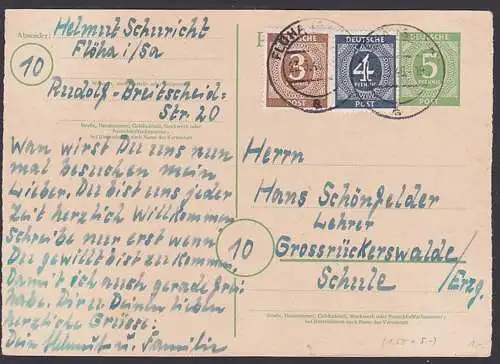 Absender:
Helmut Schuricht
Flöha i/Sa
10
Rudolf-Breitscheid-
Str. 20
Straße, Hausnummer, Gebäudeteil, Stockwerk oder
Postschließfachnummer;
bei Untermietern auch Name des Vermieters
Wan wirst Du uns nun
mal besuchen mein
Lieber. Du bist uns jeder
Zeit herzlich Willkommen
Schreibe nur erst wenn
Du gewillt bist zu kommen
Damit ich auch gerade frei
habe. Dir u Deinen lieben
herzliche Grüsse.
Dein Helmut u. Familie
FLÖHA
DEUTSCHE
3
POST
DEUTSCHE
4
PFENNIG
POST
DEUTSCHE
5
PFENNIG
POST
a
Herrn
Hans Schönfelder
Lehrer
10
Grossrückerswalde
Schule /Erzg.
Straße, Hausnummer, Gebäudeteil, Stockwerk oder Postschließfachnummer;
bei Untermietern auch Name des Vermieters